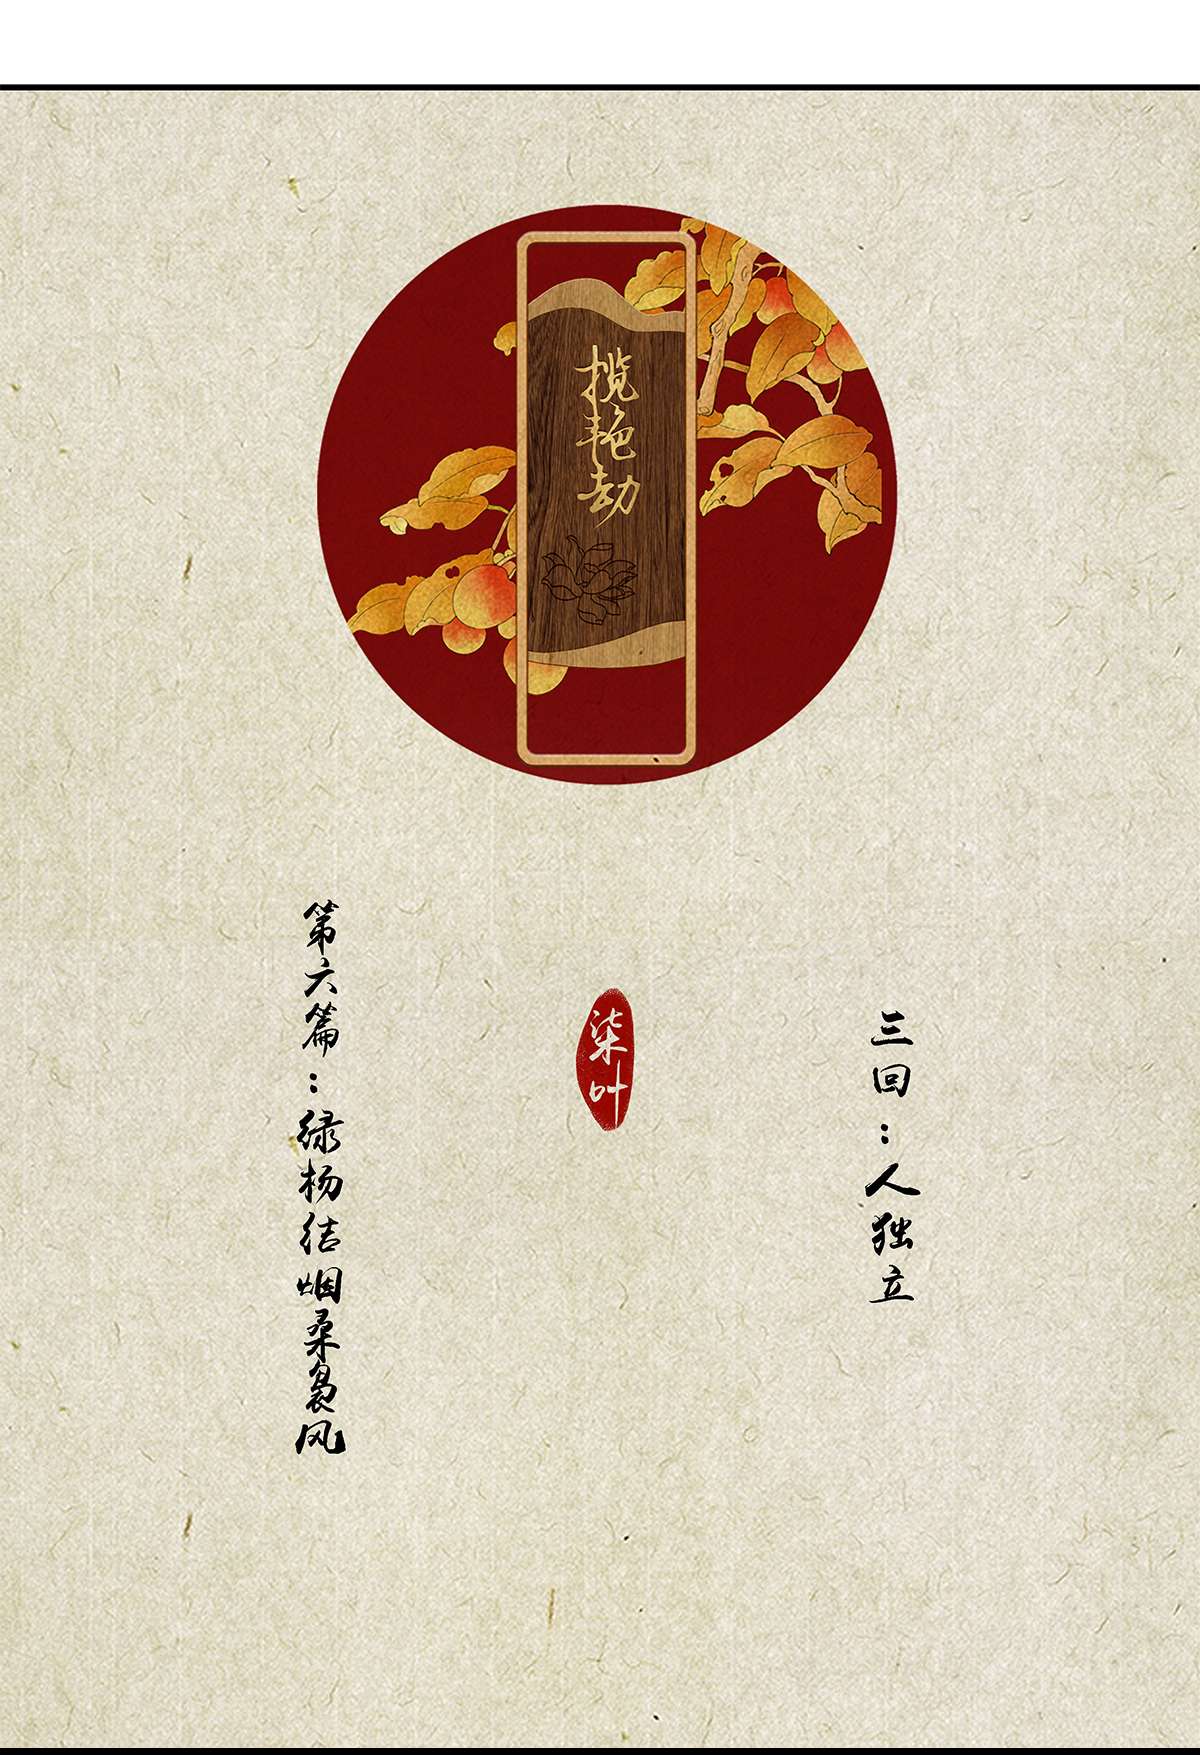 揽艳劫
第六篇：绿杨结烟桑袅风
柒叶
三回：人独立